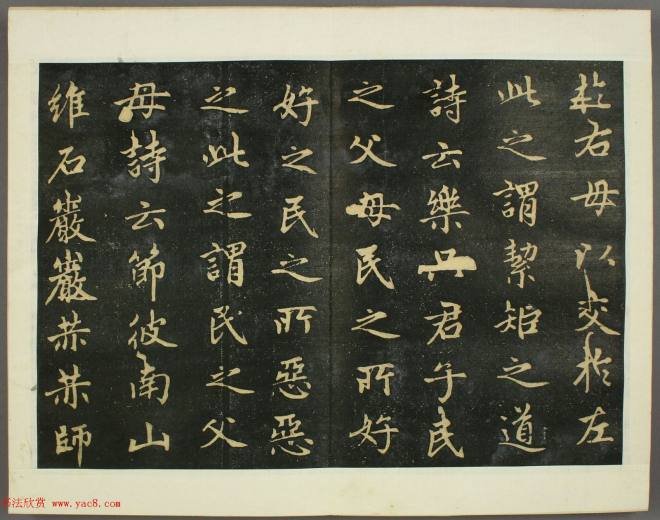 於右毋以交於左
此之謂絜矩之道
詩云樂只君子民
之父母民之所好
好之民之所惡惡
之此之謂民之父
母詩云節彼南山
維石巖巖赫赫師
书法欣赏 www.yac8.com